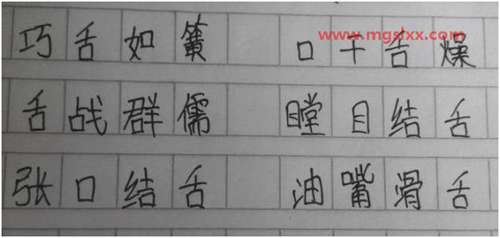 www.mgslxx.com
巧舌如簧 口干舌燥
舌战群儒 瞠目结舌
张口结舌 油嘴滑舌